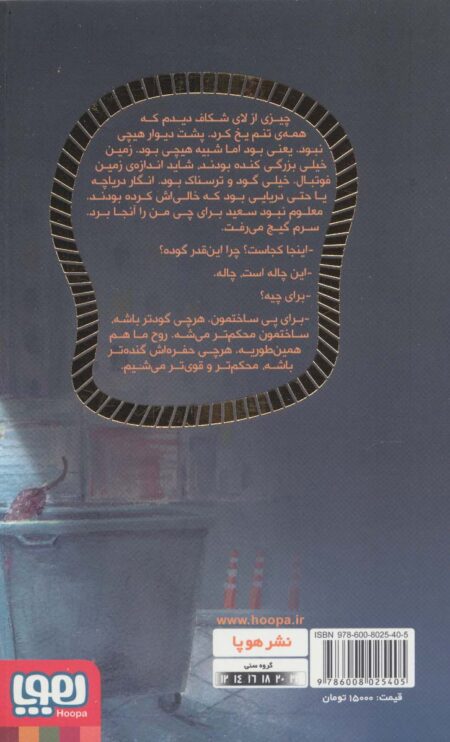 چیزی از لای شکاف دیدم که
همه‌ی تنم یخ کرد. پشت دیوار هیچی
نبود. یعنی بود اما شبیه هیچی بود. زمین
خیلی بزرگی کنده بودند، شاید اندازه‌ی زمین
فوتبال. خیلی گود و ترسناک بود. انگار دریاچه
یا حتی دریایی بود که خالی‌اش کرده بودند.
معلوم نبود سعید برای چی من را آنجا برد.
سرم گیج می‌رفت.
-اینجا کجاست؟ چرا این‌قدر گوده؟
-این چاله است، چاله.
-برای چیه؟
-برای پی ساختمون. هرچی گودتر باشه،
ساختمون محکم‌تر می‌شه. روح ما هم
همین‌طوریه. هرچی حفره‌اش گنده‌تر
باشه، محکم‌تر و قوی‌تر می‌شیم.
www.hoopa.ir
نشر هوپا
گروه سنی
۱۲ ۱۴ ۱۶ ۱۸ ۲۰
ISBN 978-600-8025-40-5
9786008025405
قیمت: ۱۵۰۰۰ تومان
هوپا
Hoopa